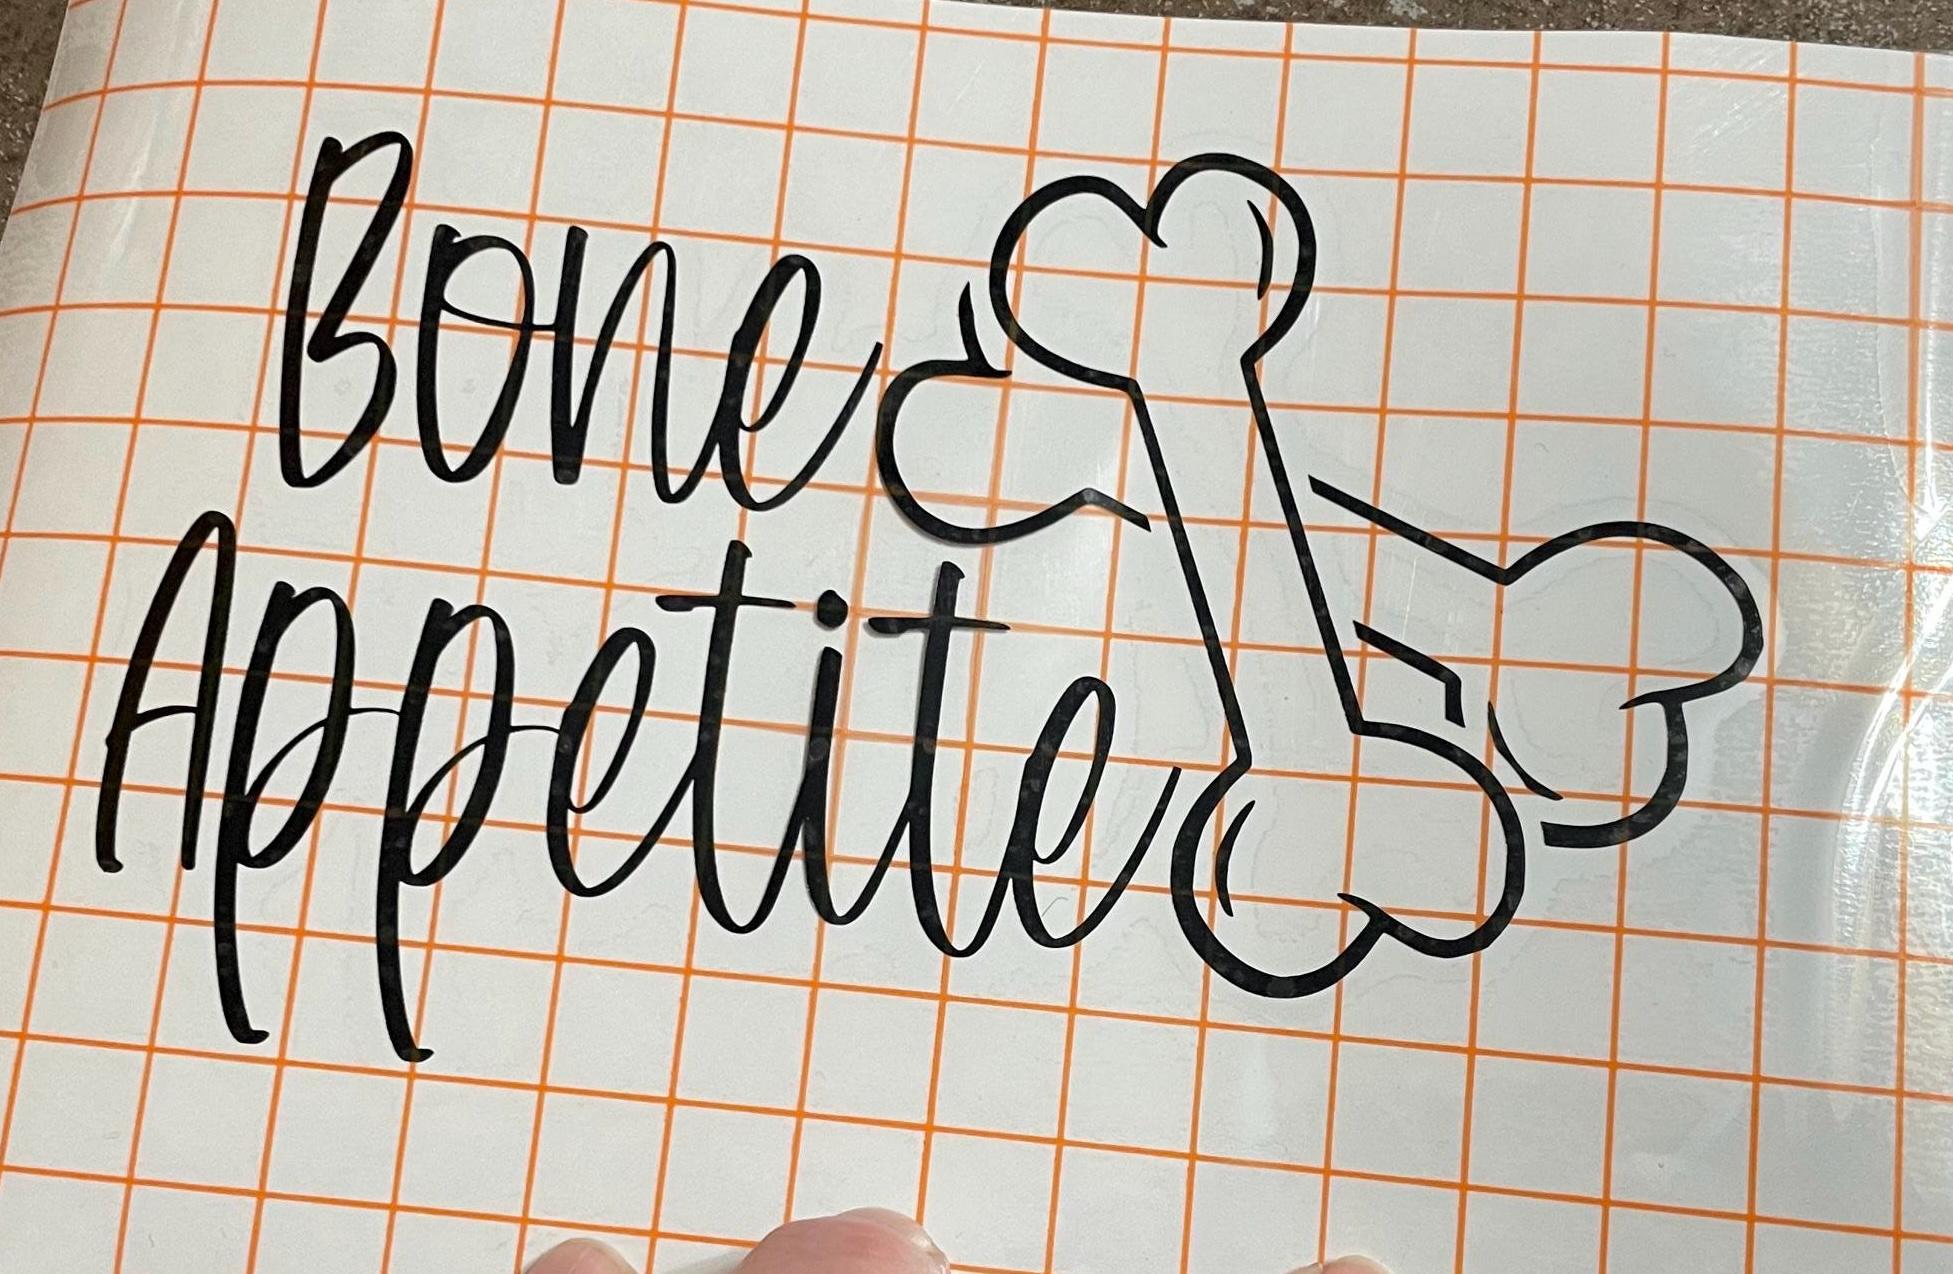 Bone
Appetite